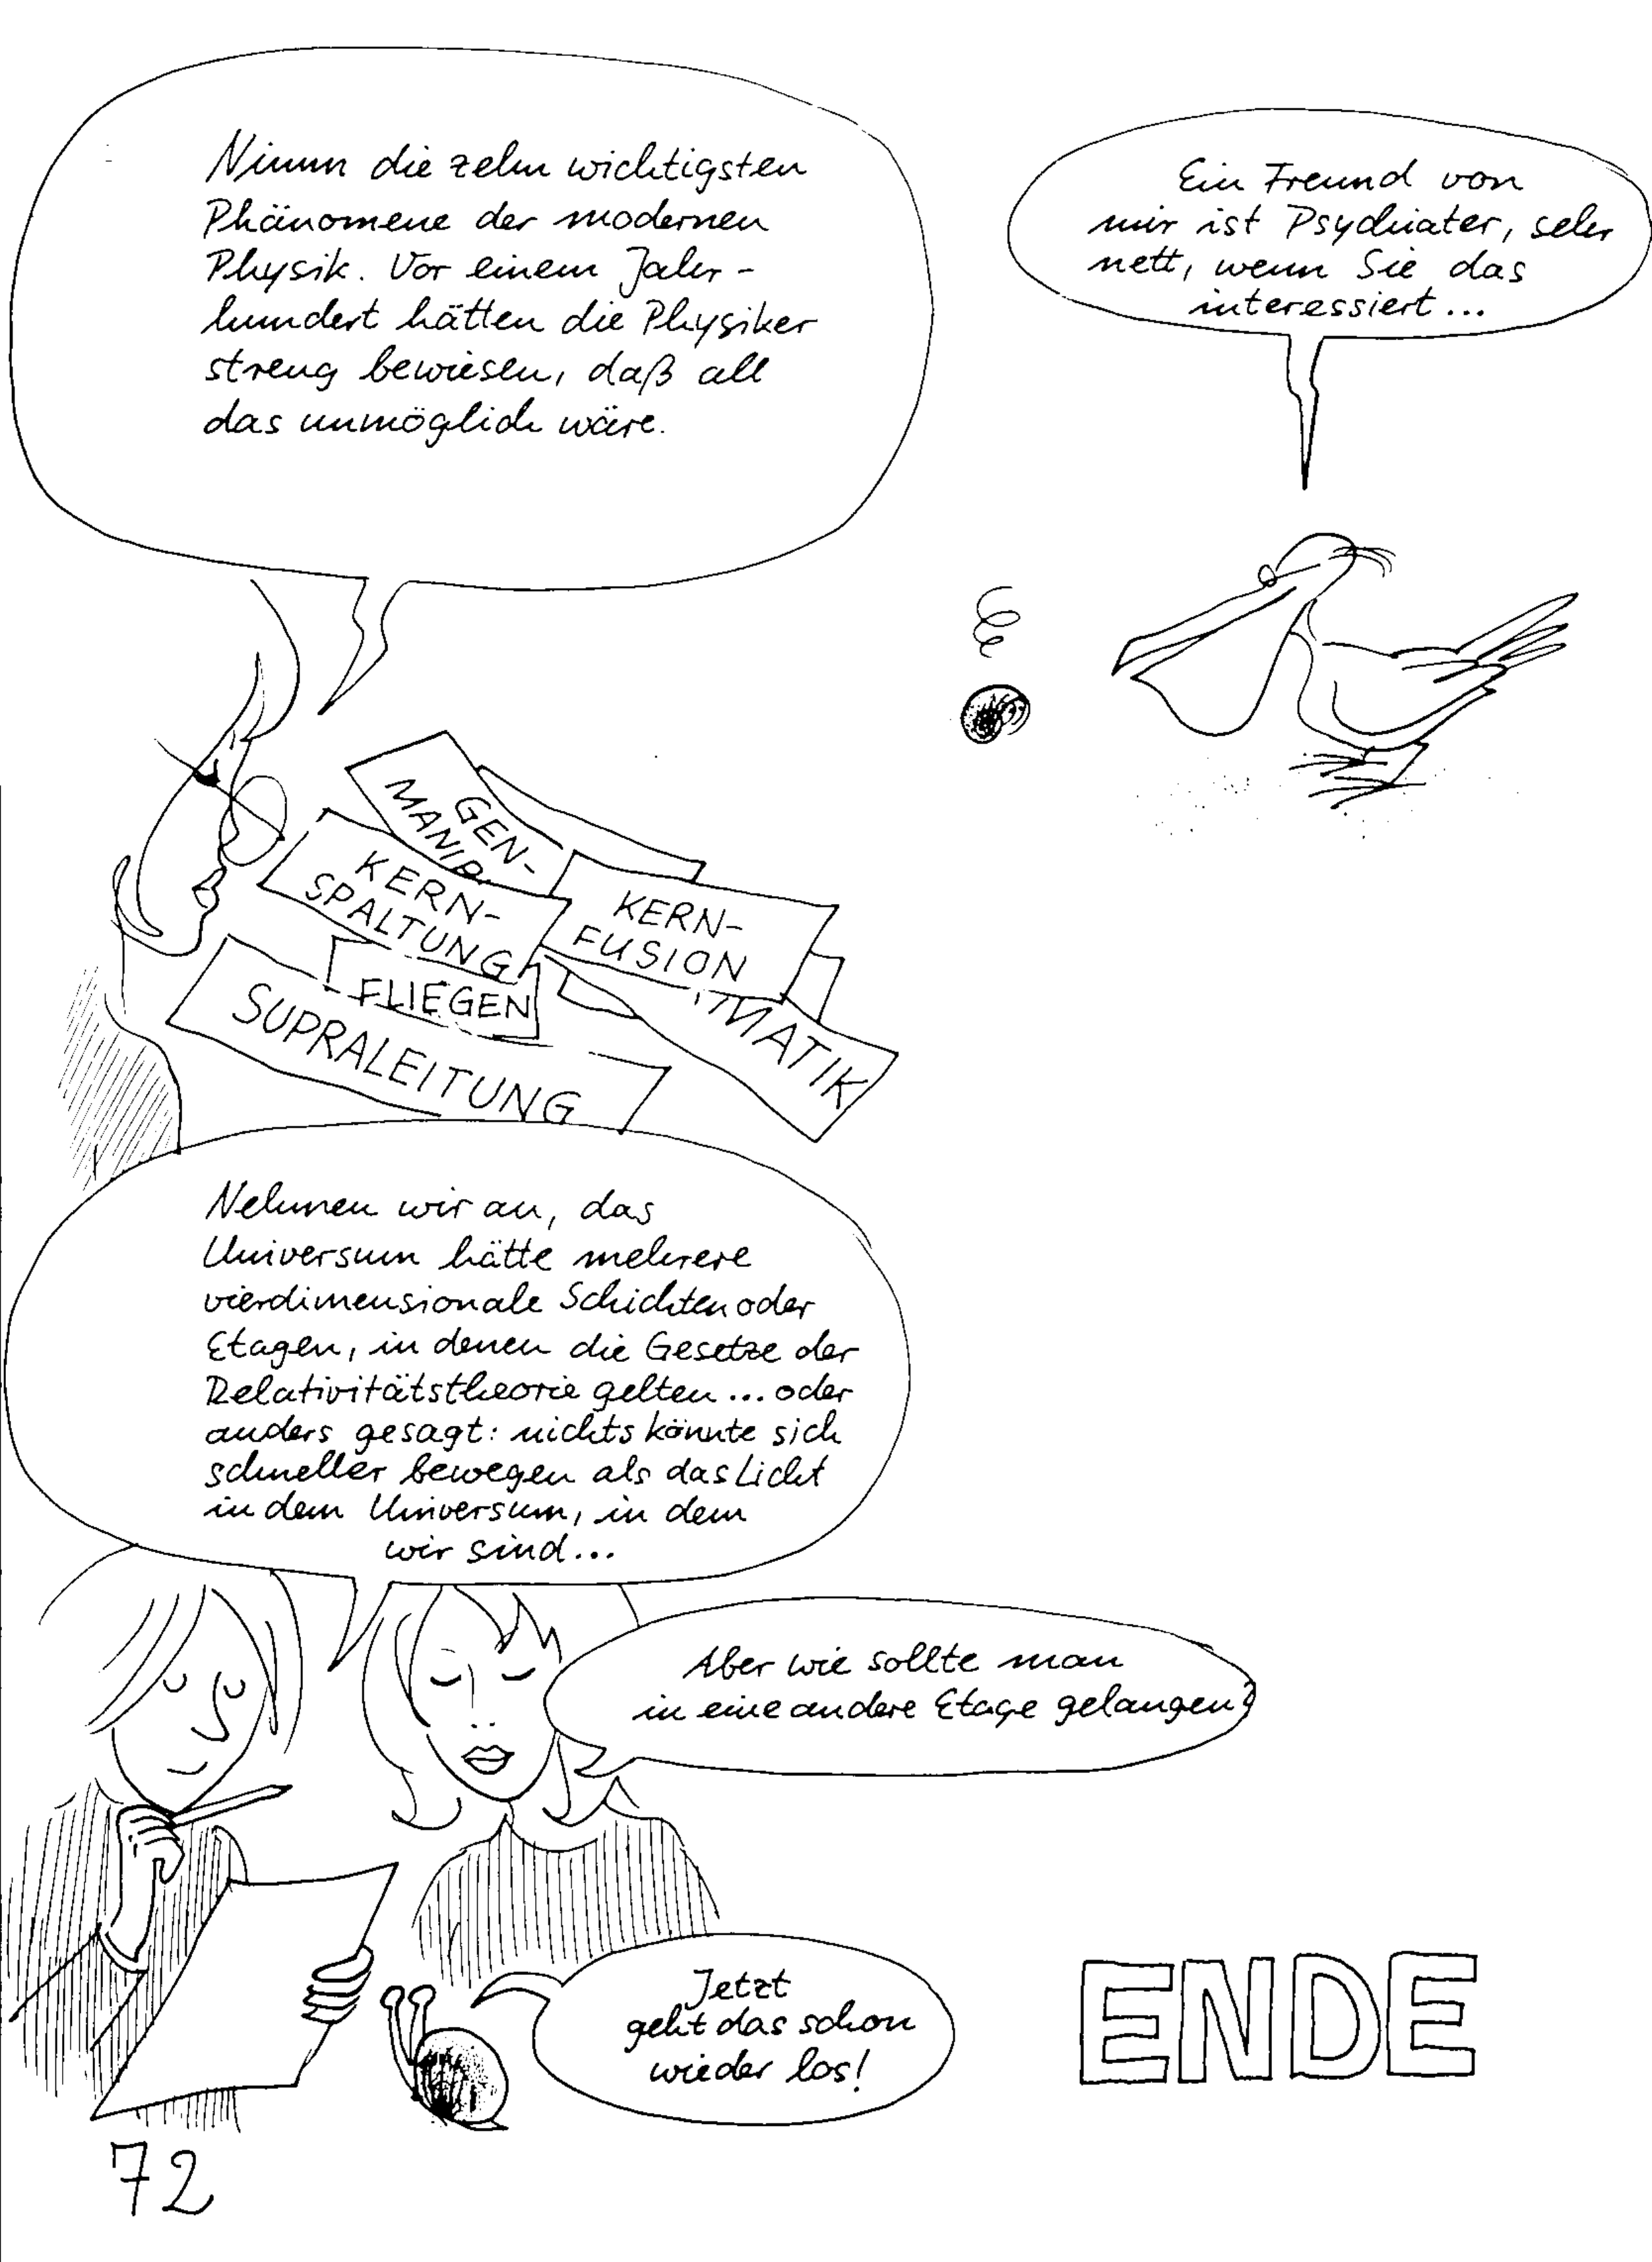 Nimm die zehn wichtigsten
Phänomene der modernen
Physik. Vor einem Jahr-
hundert hätten die Physiker
streng bewiesen, daß all
das unmöglich wäre.
Ein Freund von
mir ist Psychiater, sehr
nett, wenn Sie das
interessiert...
GEN-
MANIP.
KERN-
SPALTUNG
KERN-
FUSION
FLIEGEN
MATIK
SUPRALEITUNG
Nehmen wir an, das
Universum hätte mehrere
vierdimensionale Schichten oder
Etagen, in denen die Gesetze der
Relativitätstheorie gelten... oder
anders gesagt: nichts könnte sich
schneller bewegen als das Licht
in dem Universum, in dem
wir sind...
Aber wie sollte man
in eine andere Etage gelangen?
Jetzt
geht das schon
wieder los!
ENDE
72